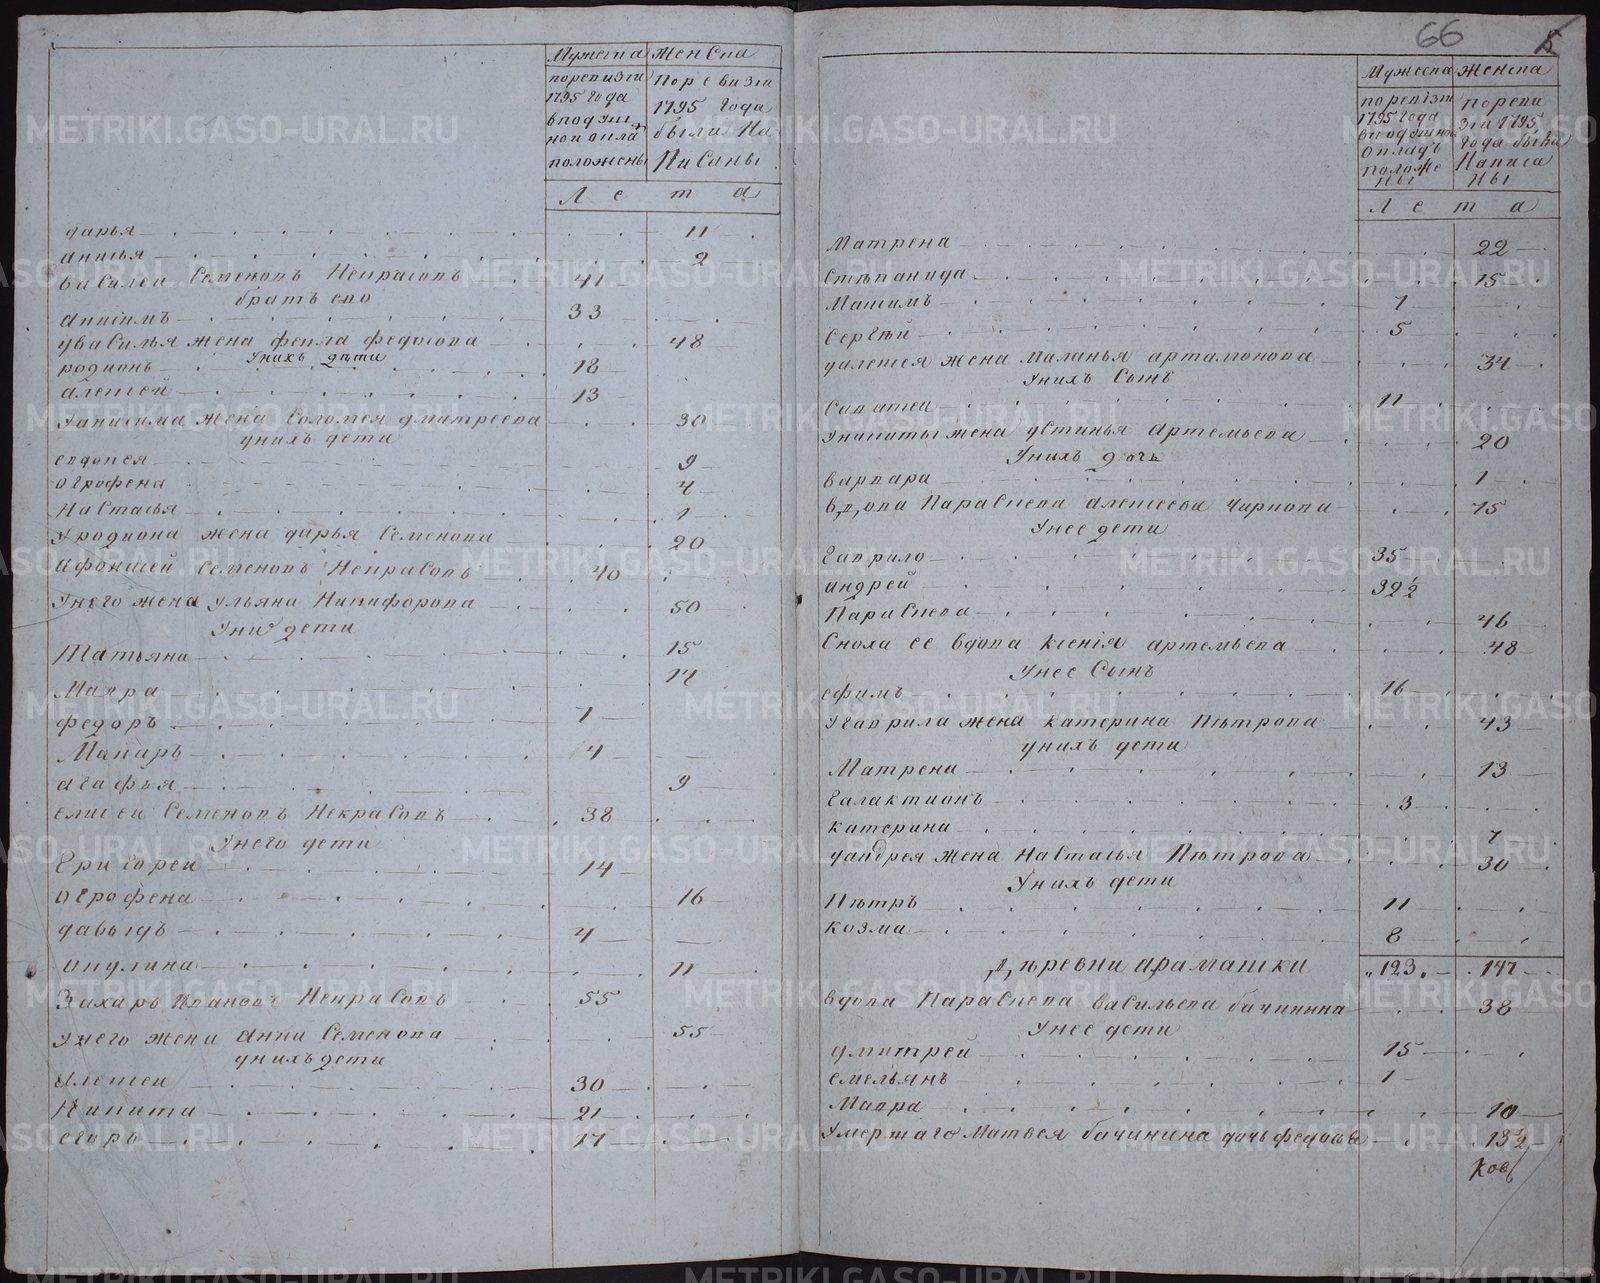 Мужеска Женска
поревизги 1795 Года вподуш ной окла положены
Пор е визги 1795 Года были На Пи Саны
Л е т а
дарья 11
анисья 2
василеи Семеновъ Некрасовъ 41
братъ ево
Аникимъ 33
увасилья жена фекла федосова 48
Унихъ дѣти
родионъ 18
алексей 13
Уаникима жена Соломея дмитреева 30
унихъ дети
евдокея 9
огрофена 4
Настасья 1
Уродиона жена дарья Семенова 20
Афонасей Семеновъ Некрасовъ 40
Унего жена ульяна Никифорова 50
Уни дети
Татьяна 15
Мавра 14
федоръ 7
Макаръ 4
агафья 9
елисеи Семеновъ Некрасовъ 38
Унего дети
Григореи 14
огрофена 16
давыдъ 4
окулина 11
Захаръ Ивановъ Некрасовъ 55
Унего жена Анна Семенова 55
унихъ дети
Алексеи 30
Никита 21
егоръ 17
66
Мужеска Женска
поревизги 1795 Года вподушно окладъ положе ны
пореви зги 1795 Года была Написа ны
Л е т а
Матрена 22
Степанида 15
Максимъ 7
Сергѣи 5
уалексея жена Маланья артамонова 34
Унихъ Сынъ
Саватеи 11
Уникиты жена устинья Артемьева 20
Унихъ дочь
варвара 1
вдова Парасковья алексеева Чиркова 75
Унее дети
Гаврило 35
андрей 32½
Парасковья 46
Сноха ее вдова ксенiя артемьева 48
Унее Сынъ
ефимъ 16
Угаврила жена катерина Пѣтрова 43
унихъ дети
Матрена 13
Галактионъ 3
катерина 7
уандрея жена Настасья Пѣтрова 30
Унихъ дети
Пѣтръ 11
козма 8
дѣревни Арамашки 123 147
вдова Парасковья васильева бачинина 38
Унее дети
дмитрей 15
емельянъ 1
Мавра 10
Умершаго Матвея бачинина дочь федосья 13½